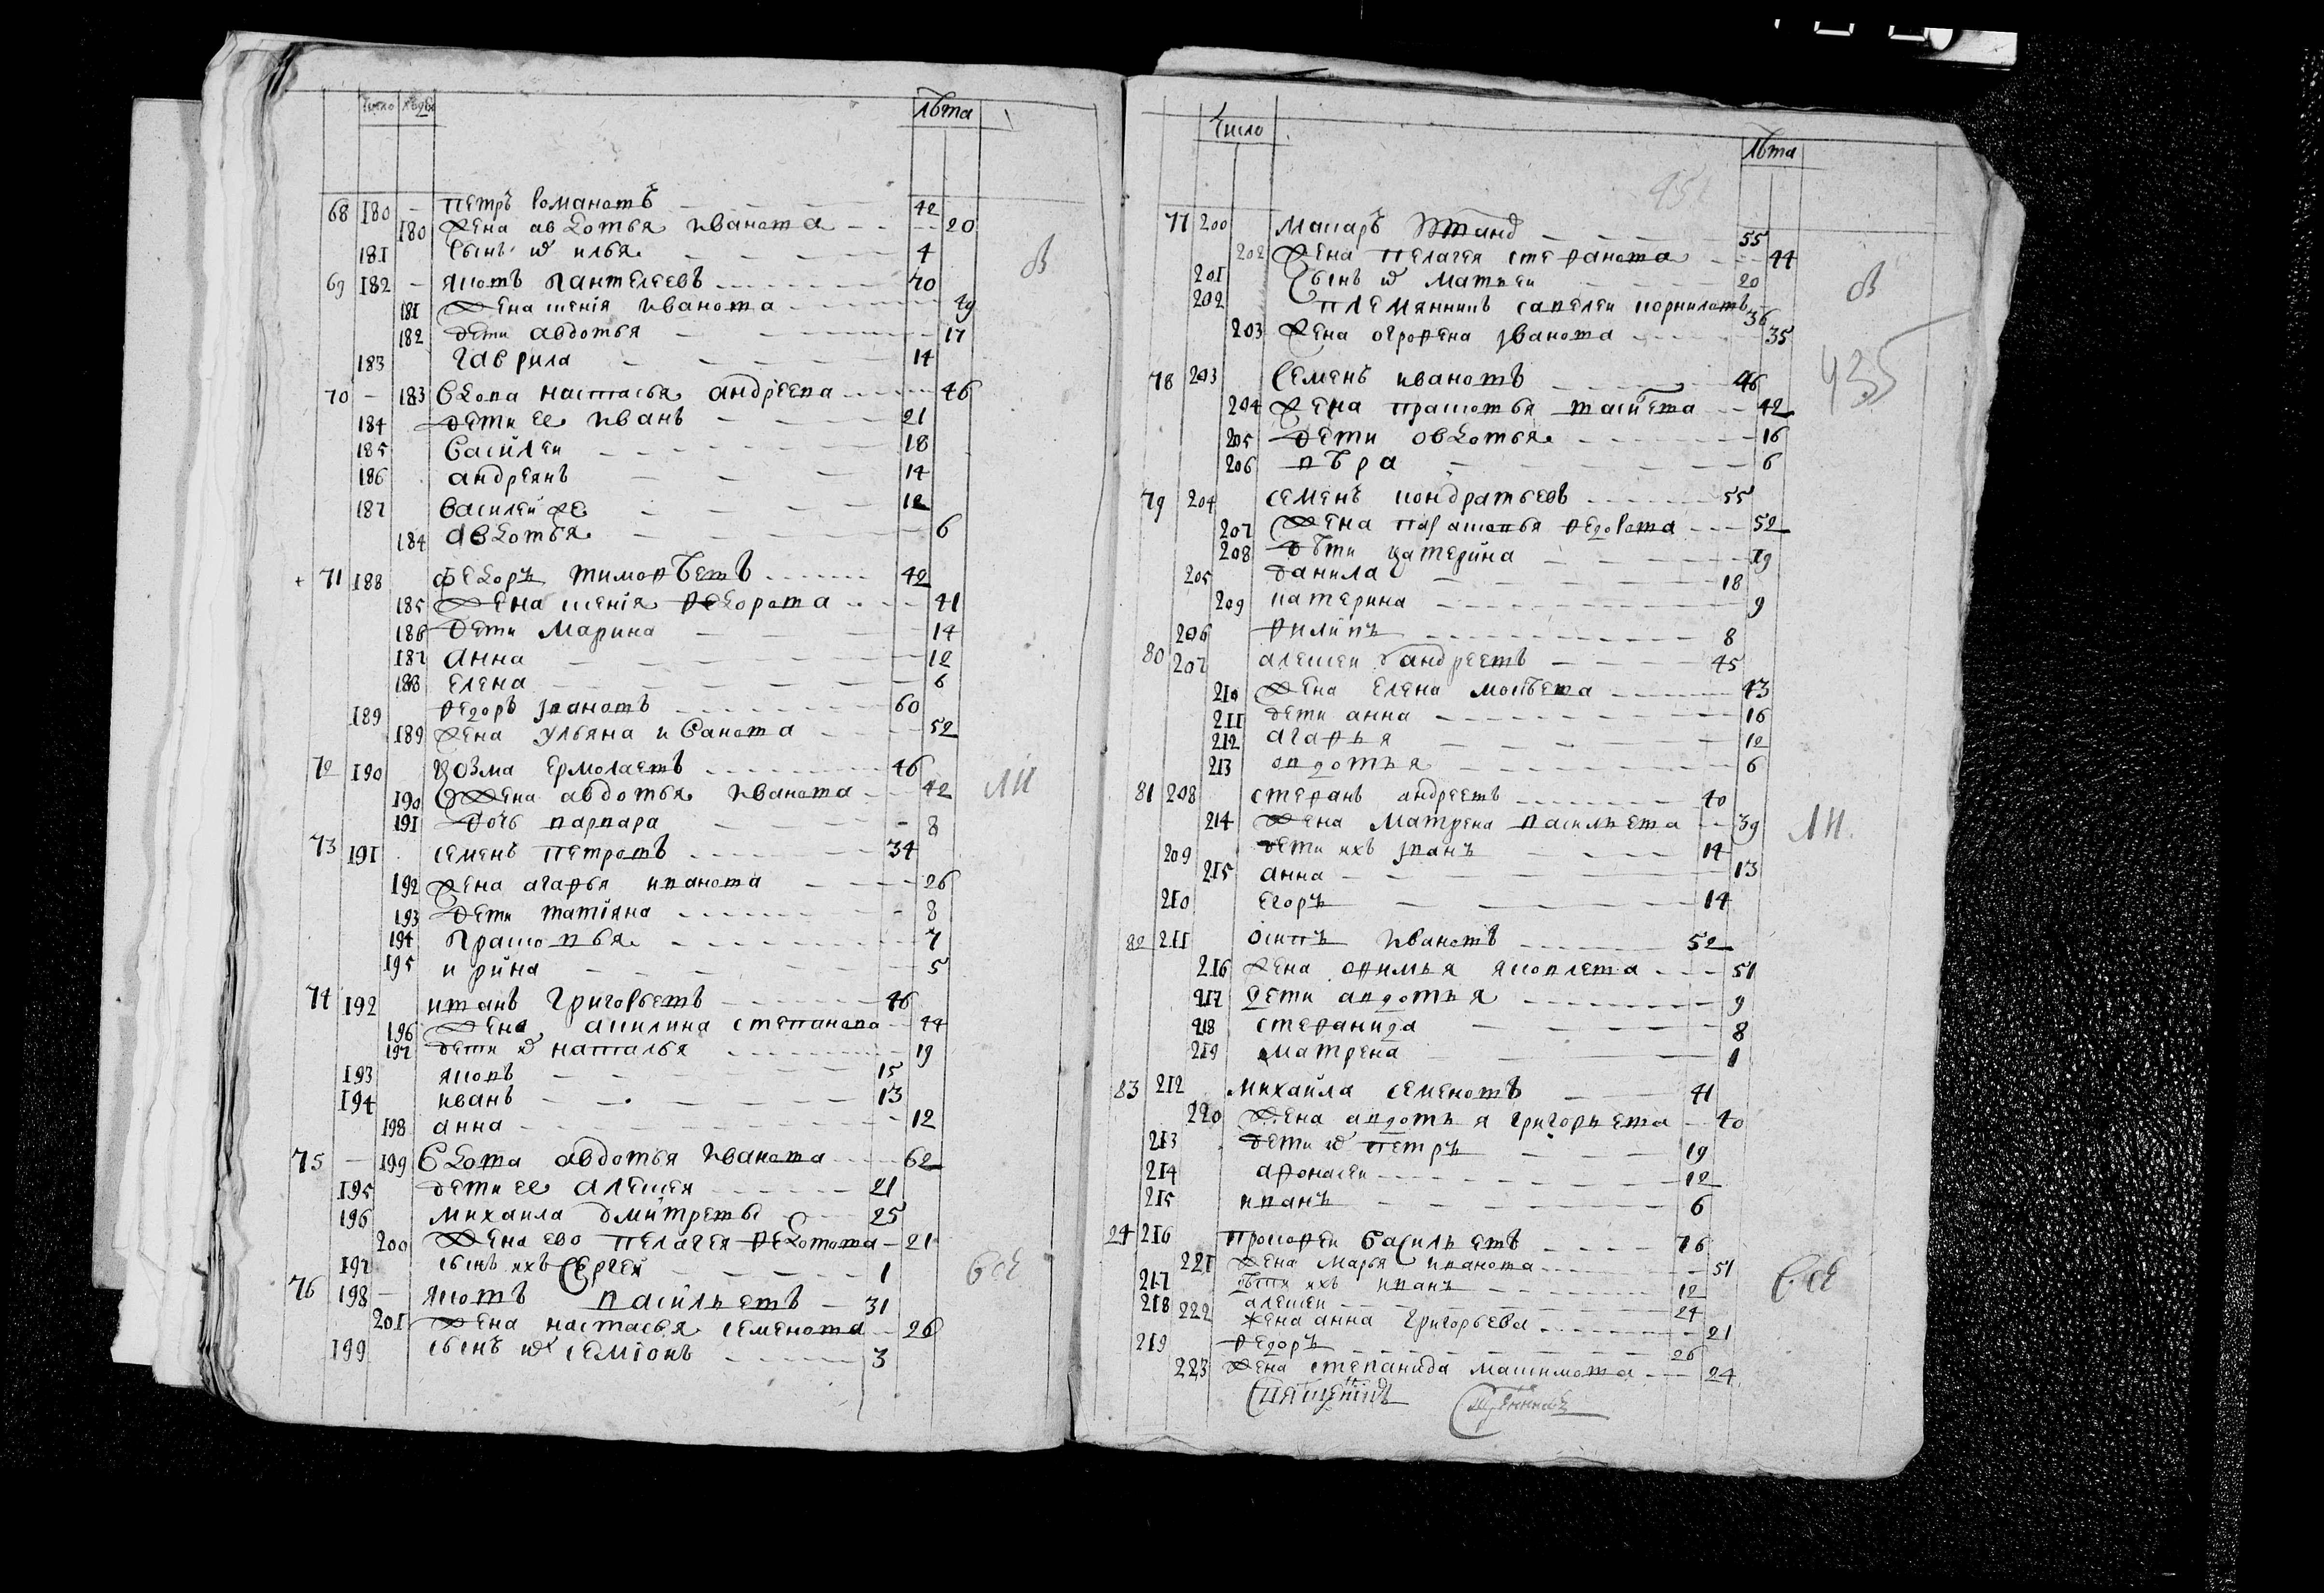 Число людей Лѣта
68 180 - Петръ Романовъ 42
180 Жена авдотья Иванова 20
181 Сынъ их илья 4
69 182 - яковъ Пантелеевъ 70
181 Жена ксенія Иванова 49
182 дети авдотья 17
183 гаврила 14
70 - 183 Вдова настасья андрѣева 46
184 дети ее Иванъ 21
185 Василеи 18
186 андреянъ 14
187 Василеи же 12
184 авдотья 6
+ 71 188 Федоръ тимофѣевъ 42
185 Жена ксенія федорова 41
186 Дети Марина 14
187 Анна 12
188 Елена 6
189 федоръ Ивановъ 60
189 Жена ульяна исаковa 52
72 190 козма ермолаевъ 46
190 Жена авдотья Иванова 42
191 Дочь варвара 8
73 191 семенъ петровъ 34
192 Жена агафья иванова 26
193 Дети татіяна 8
194 Прасковья 7
195 ирина 5
74 192 иванъ Григорьевъ 46
196 Жена акилина степанова 44
197 дети их наталья 19
193 яковъ 15
194 иванъ 13
198 анна 12
75 - 199 Вдова авдотья Иванова 62
195 дети ее алексея 21
196 михаила дмитревъ 25
200 Жена ево пелагея федотова 21
197 сынъ ихъ Сергеи 1
76 198 - яковъ васильевъ 31
201 Жена настасья семенова 26
199 сынъ их семіонъ 3
в
ли
все
Число Лѣта
451
77 200 Макаръ 55
202 Жена пелагея стефанова 44
201 Сынъ их Матвеи 20
202 племянникъ савелеи корниловъ 36
203 Жена огрофена Иванова 35
78 203 Семенъ ивановъ 46
204 Жена прасковья 42
205 дети овдотья 16
206 вѣра 6
79 204 семенъ кондратьевъ 55
207 Жена парасковья федорова 52
208 дѣти катерина 19
205 данила 18
209 катерина 9
206 филипъ 8
80 207 алексеи андреевъ 45
210 Жена елена мосѣева 43
211 дети анна 16
212 агафья 12
213 овдотья 6
81 208 стефанъ андреевъ 40
214 Жена Матрена васильева 39
209 дети ихъ иванъ 14
215 анна 13
210 егоръ 14
82 211 осипъ Ивановъ 52
216 Жена офимья яковлева 51
217 Дети авдотья 9
218 стефанида 8
219 Матрена 1
83 212 михаила семеновъ 41
220 Жена авдотья григорьева 40
213 Дети их петръ 19
214 афонасеи 12
215 иванъ 6
24 216 прокофеи Васильевъ 76
221 Жена марья иванова 51
217 дѣти ихъ иванъ 12
218 алексеи 24
222 Жена анна григорьева 21
219 федоръ 26
223 Жена степанида максимова 24
в
435
ли
все